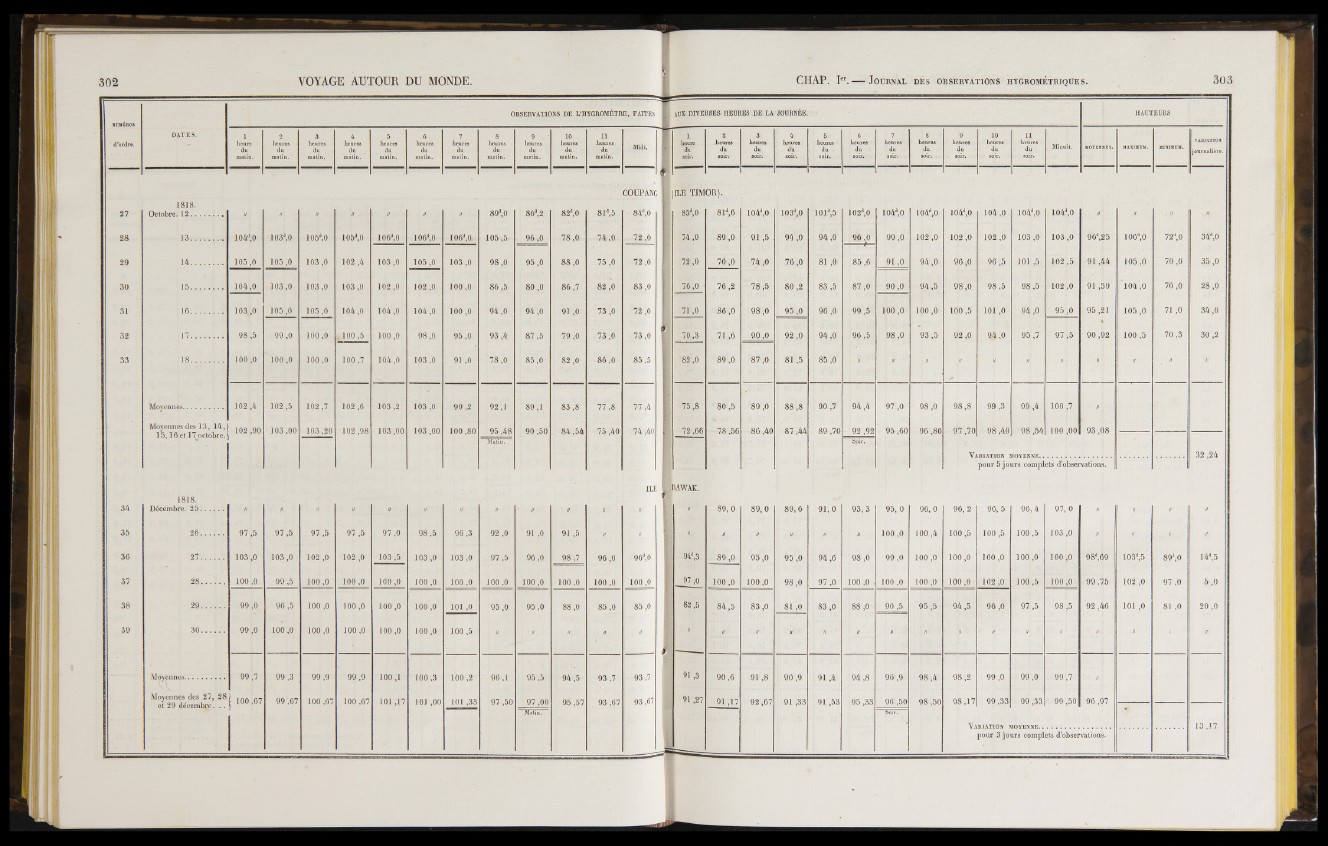 302 VOYAGE AUTOUR DU MONDE.
NUMÉROS d'ordre. DATES. OBSERVATIONS DE L'HYGROMÈTRE, FAITES
1 heure du matin. 2 heures du matin. 3 heures du matin. 4 heures du matin. 5 heures du matin. 6 heures du matin. 7 heures du matin. 8 heures du matin. 9 heures du matin. 10 heures du matin. 11 heures du matin. Midi.
COUPANG
1818.
27 Octobre. 12........ " " " " " " " 89d,0 86d,2 82d,0 81d,5 84d,0
28 13........ 104d,0 103d,0 105d,0 105d,0 106d,0 106d,0 106d,0 105,5 96,0 78,0 74,0 72,0
29 14........ 105,0 105,0 103,0 102,4 103,0 105,0 103,0 98,0 95,0 88,0 75,0 72,0
30 15........ 104,0 103,0 103,0 103,0 102,0 102,0 100,0 86,5 80,0 86,7 82,0 83,0
31 16........ 103,0 105,0 105,0 104,0 104,0 104,0 100,0 94,0 94,0 91,0 73,0 72,0
32 17........ 98,5 99,0 100,0 100,5 100,0 98,0 95,0 93,4 87,5 79,0 73,0 73,0
33 18........ 100,0 100,0 100,0 100,7 104,0 103,0 91,0 78,0 85,0 82,0 86,0 85,5
Moyennes.......... 102,4 102,5 102,7 102,6 103,2 103,0 99,2 92,1 89,1 83,8 77,8 77,4
Moyennes des 13, 14, 15, 16 et 17 octobre. 102,90 103,00 103,20 102,98 103,00 103,00 100,80 95,48 90,50 84,54 75,40 74,40
Matin.
ILE
1818.
34 Décembre. 25...... " " " " " " " " " " " "
35 26...... 97,5 97,5 97,5 97,5 97,0 98,5 96,3 92,0 91,0 91,5 " "
36 27...... 103,0 103,0 102,0 102,0 103,5 103,0 103,0 97,5 96,0 98,7 96,0 96d,0
37 28...... 100,0 99,5 100,0 100,0 100,0 100,0 100,0 100,0 100,0 100,0 100,0 100,0
38 29...... 99,0 96,5 100,0 100,0 100,0 100,0 101,0 95,0 95,0 88,0 85,0 85,0
39 30...... 99,0 100,0 100,0 100,0 100,0 100,0 100,5 " " " " "
Moyennes.......... 99,7 99,3 99,9 99,9 100,1 100,3 100,2 96,1 95,5 94,5 93,7 93,7
Moyennes des 27, 28 et 29 décembre... 100,67 99,67 100,67 100,67 101,17 101,00 101,33 97,50 97,00 95,57 93,67 93,67
Matin.
CHAP. Ier. — JOURNAL DES OBSERVATIONS HYGROMÉTRIQUES. 303
AUX DIVERSES HEURES DE LA JOURNÉE. HAUTEURS
1 heure du soir. 2 heures du soir. 3 heures du soir. 4 heures du soir. 5 heures du soir. 6 heures du soir. 7 heures du soir. 8 heures du soir. 9 heures du soir. 10 heures du soir. 11 heures du soir. Minuit. MOYENNES. MAXIMUM. MINIMUM. VARIATION journalière.
(ILE TIMOR).
85d,0 81d,6 104d,0 103d,0 101d,5 102d,0 104d,0 104d,0 104d,0 104,0 104d,0 104d,0 " " " "
74,0 89,0 91,5 94,0 94,0 96,0 99,0 102,0 102,0 102,0 103,0 103,0 96d,25 106d,0 72d,0 34d,0
72,0 70,0 74,0 76,0 81,0 85,6 91,0 94,0 96,0 96,5 101,5 102,5 91,44 105,0 70,0 35,0
76,0 76,2 78,5 80,2 83,5 87,0 90,0 94,5 98,0 98,5 98,5 102,0 91,59 104,0 76,0 28,0
71,0 86,0 98,0 95,0 96,0 99,5 100,0 100,0 100,5 101,0 94,0 95,0 95,21 105,0 71,0 34,0
70,3 71,6 90,0 92,0 94,0 96,5 98,0 93,5 92,0 94,0 95,7 97,5 90,92 100,5 70,3 30,2
82,0 89,0 87,0 81,5 85,0 " " " " " " " " " " "
75,8 80,5 89,0 88,8 90,7 94,4 97,0 98,0 98,8 99,3 99,4 100,7 "
72,66 78,56 86,40 87,44 89,70 92,92 95,60 96,80 97,70 98,40 98,54 100,00 93,08
Soir.
VARIATION MOYENNE.................. pour 5 jours complets d'observations. ........ ........ 32,24
RAWAK.
" 89,0 89,0 89,6 91,0 93,3 95,0 96,0 96,2 96,5 96,4 97,0 " " " "
" " " " " " 100,0 100,4 100,5 100,5 100,5 103,0 " " " "
94d,3 89,0 95,0 95,0 94,6 98,0 99,0 100,0 100,0 100,0 100,0 100,0 98d,69 103d,5 89d,0 14d,5
97,0 100,0 100,0 98,0 97,0 100,0 100,0 100,0 100,0 102,0 100,5 100,0 99,75 102,0 97,0 5,0
82,5 84,5 83,0 81,0 83,0 88,0 90,5 95,5 94,5 96,0 97,5 98,5 92,46 101,0 81,0 20,0
" " " " " " " " " " " " " " " "
91,5 90,6 91,8 90,9 91,4 94,8 96,9 98,4 98,2 99,0 99,0 99,7 "
91,27 91,17 92,67 91,33 91,53 95,33 96,50 98,50 98,17 99,33 99,33 99,50 96,97
Soir.
VARIATION MOYENNE.................. pour 3 jours complets d'observations. ........ ........ 13,17